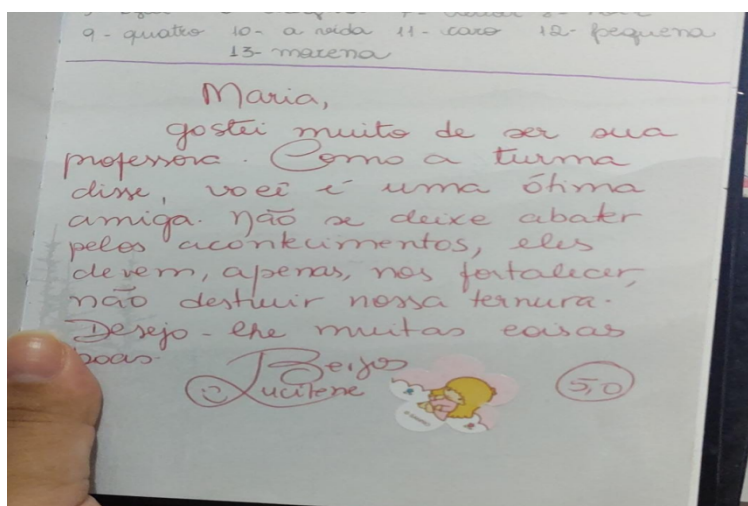 9- quatro 10- a vida 11- caro 12- pequena
13- morena
Maria,
gostei muito de ser sua
professora. Como a turma
disse, você é uma ótima
amiga. Não se deixe abater
pelos acontecimentos, eles
devem, apenas, nos fortalecer,
não destruir nossa ternura.
Desejo-lhe muitas coisas
boas.
Beijos
Lucilene
5,0